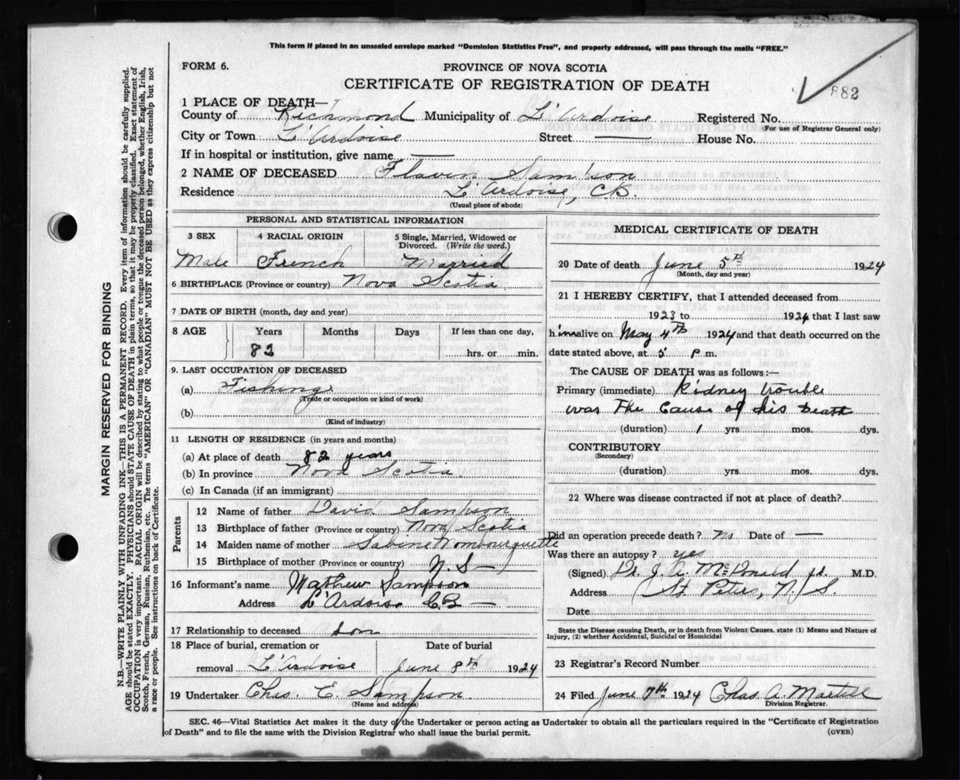 This form if placed in an unsealed envelope marked "Dominion Statistics Free", and properly addressed, will pass through the mails "FREE."
FORM 6.
PROVINCE OF NOVA SCOTIA
CERTIFICATE OF REGISTRATION OF DEATH
882
1 PLACE OF DEATH—
County of Richmond Municipality of L'Ardoise Registered No.
(For use of Registrar General only)
City or Town L'Ardoise Street — House No.
If in hospital or institution, give name —
2 NAME OF DECEASED Flavin Sampson
Residence L'Ardoise, CB.
(Usual place of abode)
PERSONAL AND STATISTICAL INFORMATION
3 SEX 4 RACIAL ORIGIN 5 Single, Married, Widowed or Divorced. (Write the word.)
Male French Married
6 BIRTHPLACE (Province or country) Nova Scotia
7 DATE OF BIRTH (month, day and year)
8 AGE Years Months Days If less than one day,
82 hrs. or min.
9. LAST OCCUPATION OF DECEASED
(a) Fishing
(Trade or occupation or kind of work)
(b)
(Kind of industry)
11 LENGTH OF RESIDENCE (in years and months)
(a) At place of death 82 years
(b) In province Nova Scotia
(c) In Canada (if an immigrant)
Parents
12 Name of father David Sampson
13 Birthplace of father (Province or country) Nova Scotia
14 Maiden name of mother Sabine Mombourquette
15 Birthplace of mother (Province or country) N. S —
16 Informant's name Mathew Sampson
Address L'Ardoise C.B —
17 Relationship to deceased Son
18 Place of burial, cremation or removal Date of burial
L'Ardoise June 8th 1924
19 Undertaker Chas. E. Sampson
(Name and address)
MEDICAL CERTIFICATE OF DEATH
20 Date of death June 5th 1924
(Month, day and year)
21 I HEREBY CERTIFY, that I attended deceased from
1923 to 1924 that I last saw
h im alive on May 4th 1924 and that death occurred on the
date stated above, at 5 P.m.
The CAUSE OF DEATH was as follows:—
Primary (immediate) Kidney trouble
was The Cause of his Death
(duration) 1 yrs mos. dys.
CONTRIBUTORY
(Secondary)
(duration) yrs mos. dys.
22 Where was disease contracted if not at place of death?
Did an operation precede death? No Date of —
Was there an autopsy? yes
(Signed) Dr. J. A. McDonald M.D.
Address St Peters, N. S.
Date
State the Disease causing Death, or in death from Violent Causes, state (1) Means and Nature of Injury, (2) whether Accidental, Suicidal or Homicidal
23 Registrar's Record Number
24 Filed June 7th 1924 Chas A. Martell
Division Registrar.
SEC. 46—Vital Statistics Act makes it the duty of the Undertaker or person acting as Undertaker to obtain all the particulars required in the "Certificate of Registration
of Death" and to file the same with the Division Registrar who shall issue the burial permit. (OVER)
MARGIN RESERVED FOR BINDING
N.B.—WRITE PLAINLY WITH UNFADING INK—THIS IS A PERMANENT RECORD. Every item of information should be carefully supplied.
AGE should be stated EXACTLY. PHYSICIANS should STATE CAUSE OF DEATH in plain terms, so that it may be properly classified. Exact statement of
OCCUPATION is very important. RACIAL ORIGIN will be described by stating to what people or tongue the deceased person belonged, whether English, Irish,
Scotch, French, German, Russian, Ruthenian, etc. The terms "AMERICAN" or "CANADIAN" MUST NOT BE USED as they express citizenship but not
a race or people. See instructions on back of Certificate.